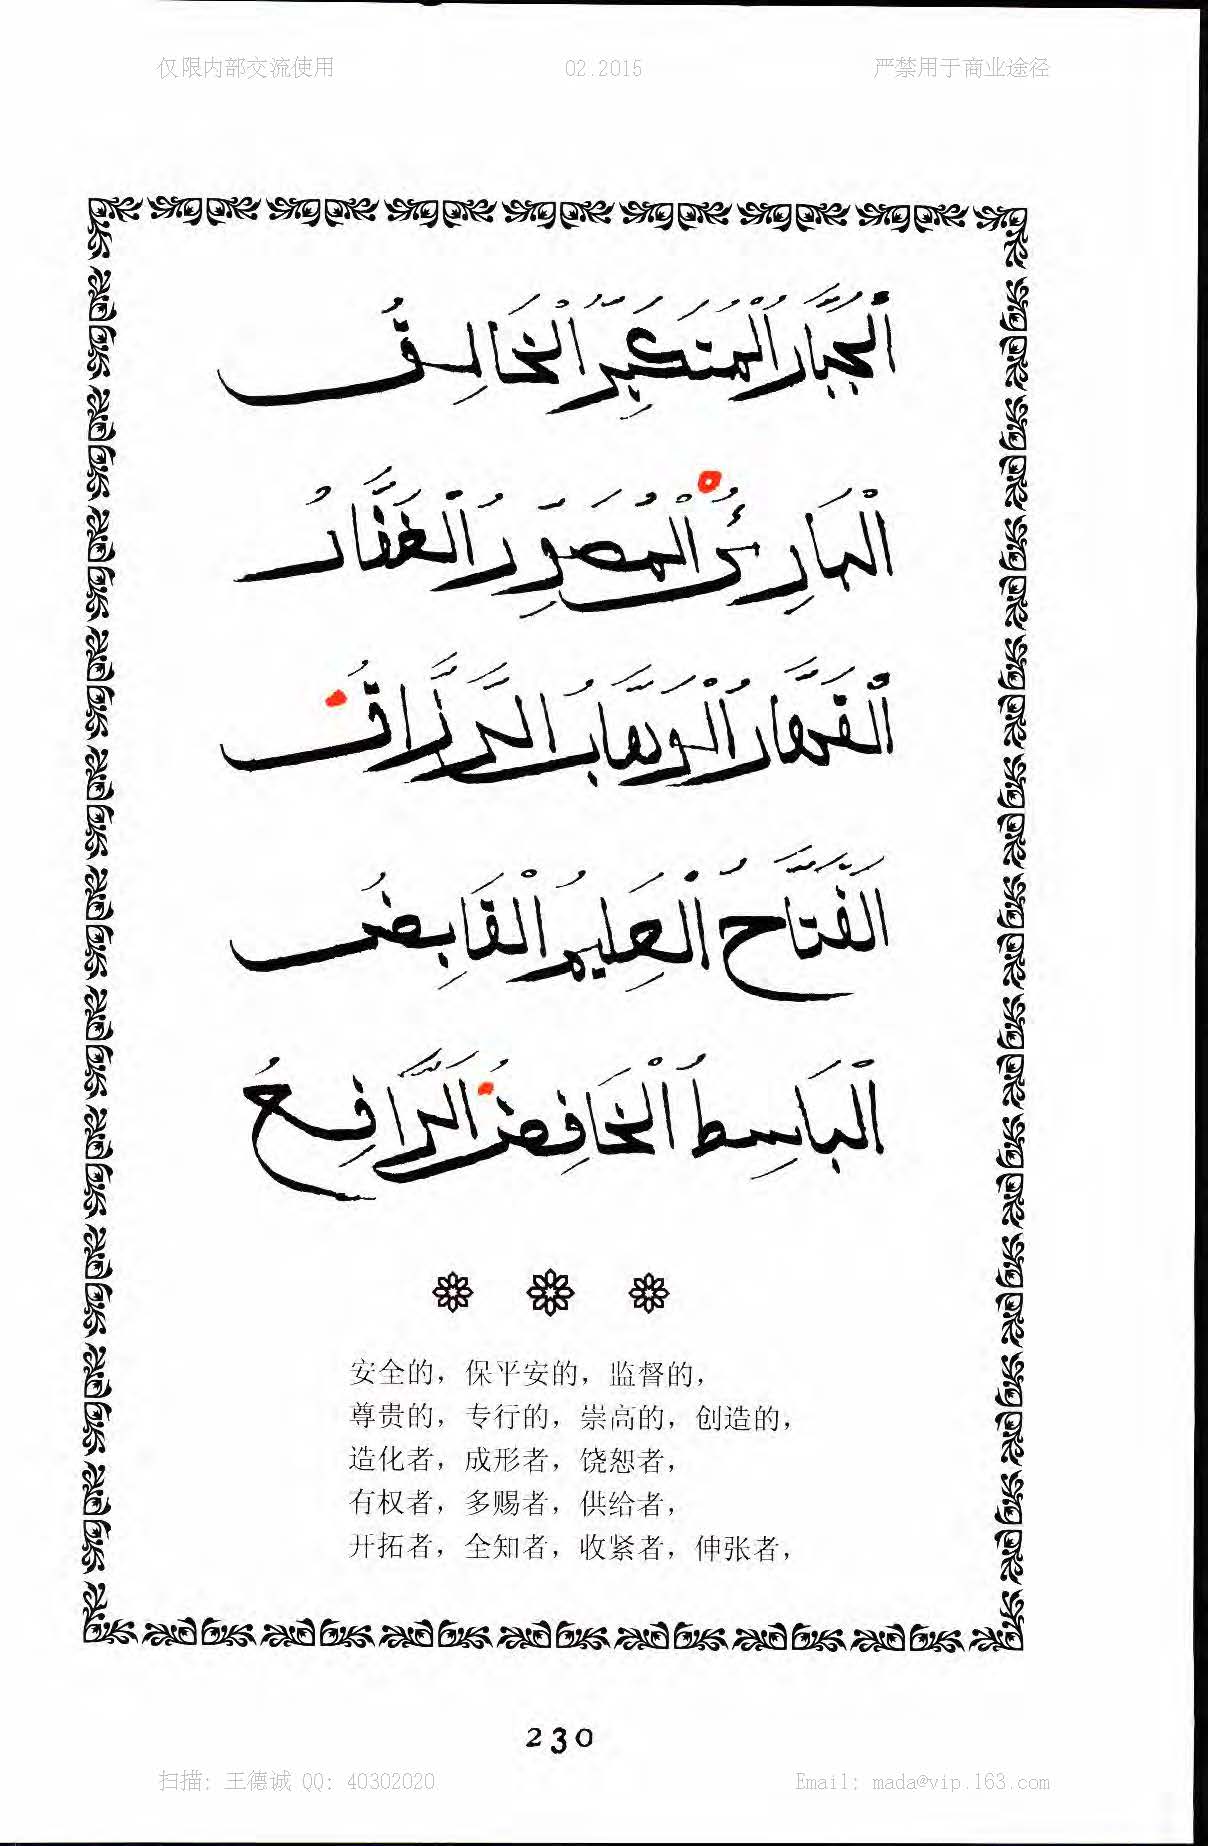 仅限内部交流使用 02.2015 严禁用于商业途径
اَلْجَبَّارُ الْمُتَكَبِّرُ الْخَالِقُ
الْبَارِئُ الْمُصَوِّرُ الْغَفَّارُ
الْقَهَّارُ الْوَهَّابُ الرَّزَّاقُ
الْفَتَّاحُ الْعَلِيمُ الْقَابِضُ
الْبَاسِطُ الْخَافِضُ الرَّافِعُ
安全的，保平安的，监督的，
尊贵的，专行的，崇高的，创造的，
造化者，成形者，饶恕者，
有权者，多赐者，供给者，
开拓者，全知者，收紧者，伸张者，
230
扫描: 王德诚 QQ: 40302020 Email: mada@vip.163.com